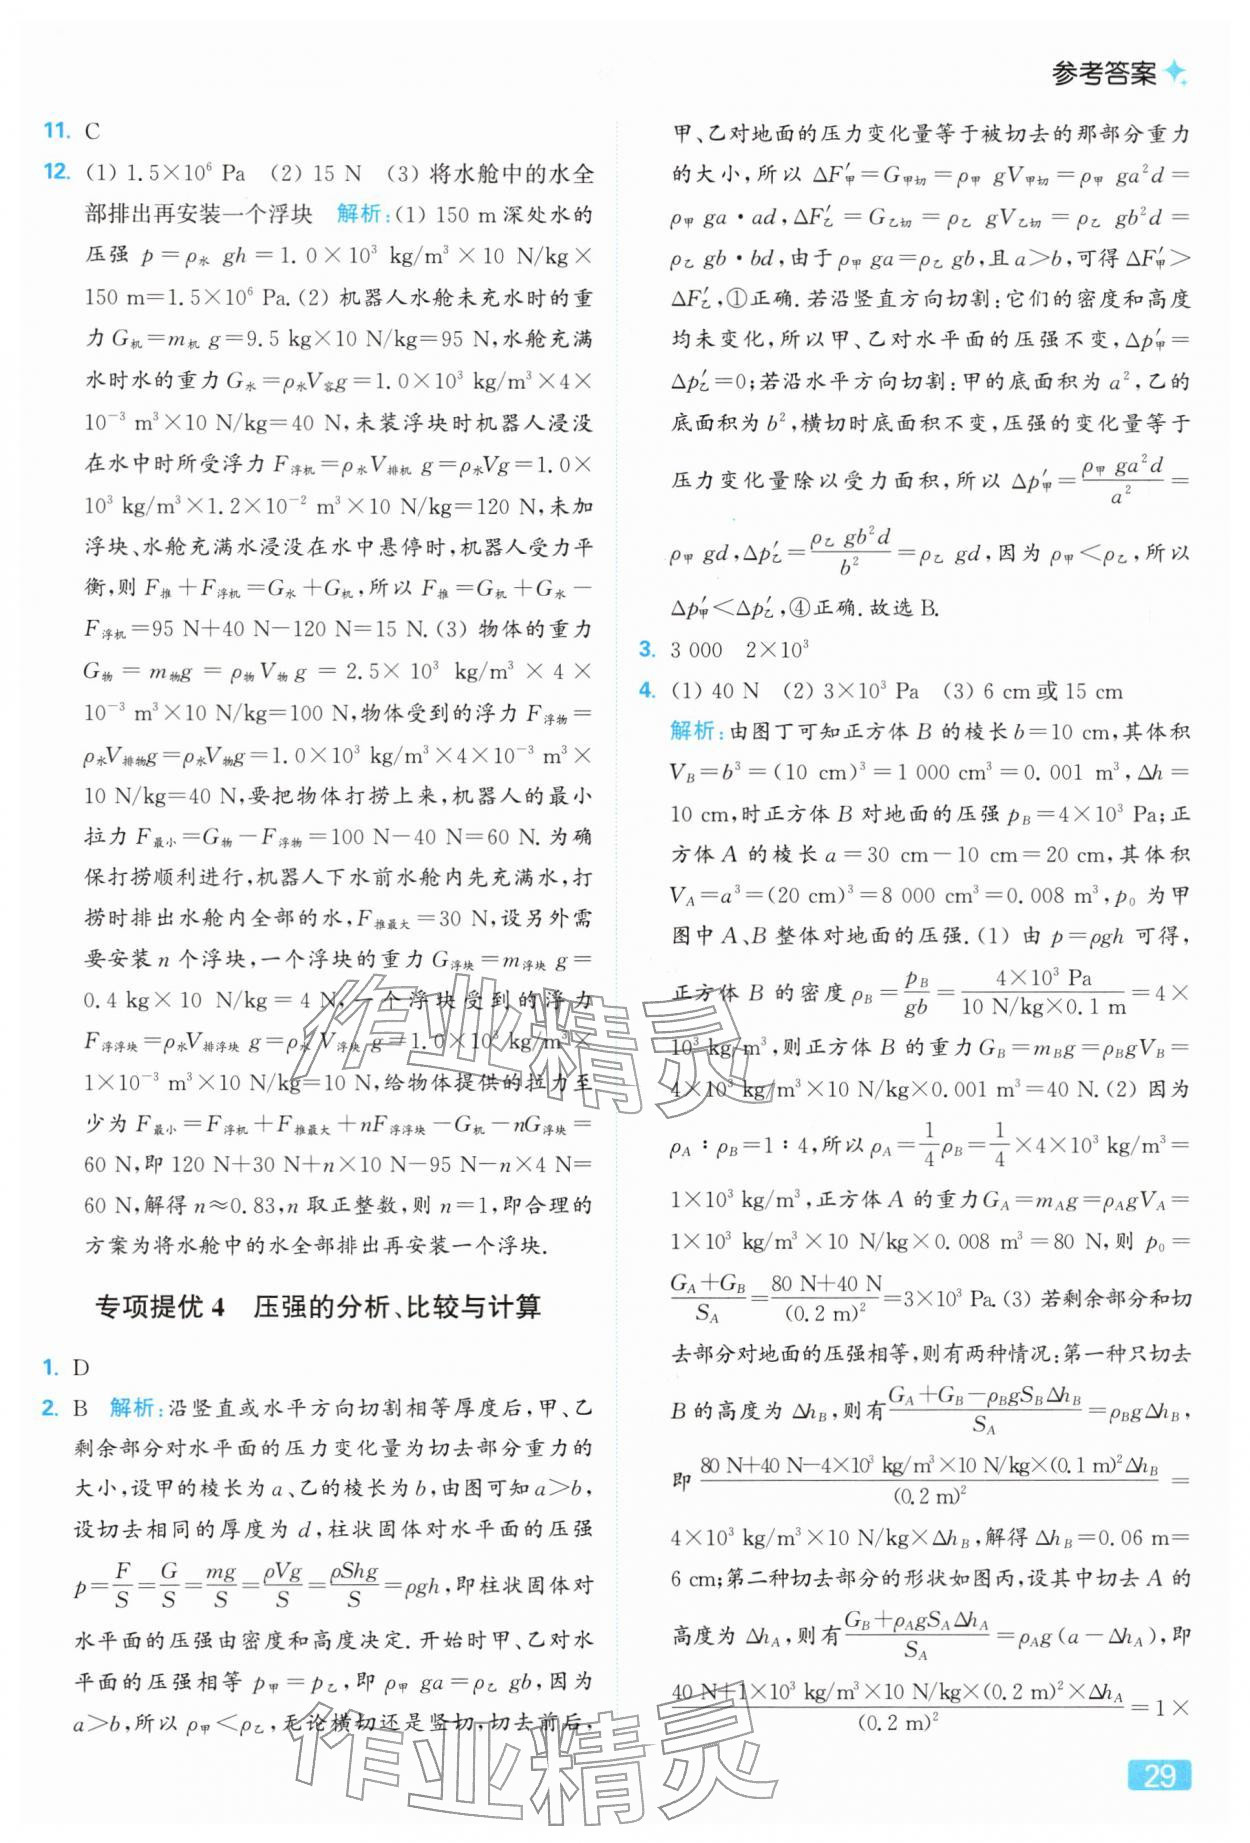 参考答案
11. C
12. (1) 1.5×10⁶ Pa (2) 15 N (3) 将水舱中的水全
部排出再安装一个浮块 解析:(1) 150 m深处水的
压强 p=ρ水 gh=1.0×10³ kg/m³×10 N/kg×
150 m=1.5×10⁶ Pa.(2) 机器人水舱未充水时的重
力G机=m机 g=9.5 kg×10 N/kg=95 N,水舱充满
水时水的重力G水=ρ水V容g=1.0×10³ kg/m³×4×
10⁻³ m³×10 N/kg=40 N,未装浮块时机器人浸没
在水中时所受浮力F浮机=ρ水V排机 g=ρ水Vg=1.0×
10³ kg/m³×1.2×10⁻² m³×10 N/kg=120 N,未加
浮块、水舱充满水浸没在水中悬停时,机器人受力平
衡,则F推+F浮机=G水+G机,所以F推=G机+G水-
F浮机=95 N+40 N-120 N=15 N.(3) 物体的重力
G物=m物g=ρ物V物g=2.5×10³ kg/m³×4×
10⁻³ m³×10 N/kg=100 N,物体受到的浮力F浮物=
ρ水V排物g=ρ水V物g=1.0×10³ kg/m³×4×10⁻³ m³×
10 N/kg=40 N,要把物体打捞上来,机器人的最小
拉力F最小=G物-F浮物=100 N-40 N=60 N.为确
保打捞顺利进行,机器人下水前水舱内先充满水,打
捞时排出水舱内全部的水,F推最大=30 N,设另外需
要安装n个浮块,一个浮块的重力G浮块=m浮块 g=
0.4 kg×10 N/kg=4 N,一个浮块受到的浮力
F浮浮块=ρ水V排浮块 g=ρ水V浮块 g=1.0×10³ kg/m³×
1×10⁻³ m³×10 N/kg=10 N,给物体提供的拉力至
少为F最小=F浮机+F推最大+nF浮浮块-G机-nG浮块=
60 N,即120 N+30 N+n×10 N-95 N-n×4 N=
60 N,解得n≈0.83,n取正整数,则n=1,即合理的
方案为将水舱中的水全部排出再安装一个浮块.
专项提优4 压强的分析、比较与计算
1. D
2. B 解析:沿竖直或水平方向切割相等厚度后,甲、乙
剩余部分对水平面的压力变化量为切去部分重力的
大小,设甲的棱长为a、乙的棱长为b,由图可知a>b,
设切去相同的厚度为d,柱状固体对水平面的压强
p=F/S=G/S=mg/S=ρVg/S=ρShg/S=ρgh,即柱状固体对
水平面的压强由密度和高度决定.开始时甲、乙对水
平面的压强相等p甲=p乙,即ρ甲 ga=ρ乙 gb,因为
a>b,所以ρ甲<ρ乙,无论横切还是竖切,切去前后,
甲、乙对地面的压力变化量等于被切去的那部分重力
的大小,所以ΔF′甲=G甲切=ρ甲 gV甲切=ρ甲 ga²d=
ρ甲 ga·ad,ΔF′乙=G乙切=ρ乙 gV乙切=ρ乙 gb²d=
ρ乙 gb·bd,由于ρ甲 ga=ρ乙 gb,且a>b,可得ΔF′甲>
ΔF′乙,①正确.若沿竖直方向切割:它们的密度和高度
均未变化,所以甲、乙对水平面的压强不变,Δp′甲=
Δp′乙=0;若沿水平方向切割:甲的底面积为a²,乙的
底面积为b²,横切时底面积不变,压强的变化量等于
压力变化量除以受力面积,所以Δp′甲=ρ甲 ga²d/a²=
ρ甲 gd,Δp′乙=ρ乙 gb²d/b²=ρ乙 gd,因为ρ甲<ρ乙,所以
Δp′甲<Δp′乙,④正确.故选B.
3. 3 000 2×10³
4. (1) 40 N (2) 3×10³ Pa (3) 6 cm或15 cm
解析:由图丁可知正方体B的棱长b=10 cm,其体积
V_B=b³=(10 cm)³=1 000 cm³=0.001 m³,Δh=
10 cm,时正方体B对地面的压强p_B=4×10³ Pa;正
方体A的棱长a=30 cm-10 cm=20 cm,其体积
V_A=a³=(20 cm)³=8 000 cm³=0.008 m³,p₀为甲
图中A、B整体对地面的压强.(1) 由p=ρgh可得,
正方体B的密度ρ_B=p_B/gb=4×10³ Pa/(10 N/kg×0.1 m)=4×
10³ kg/m³,则正方体B的重力G_B=m_Bg=ρ_BgV_B=
4×10³ kg/m³×10 N/kg×0.001 m³=40 N.(2) 因为
ρ_A∶ρ_B=1∶4,所以ρ_A=1/4ρ_B=1/4×4×10³ kg/m³=
1×10³ kg/m³,正方体A的重力G_A=m_Ag=ρ_AgV_A=
1×10³ kg/m³×10 N/kg×0.008 m³=80 N,则p₀=
(G_A+G_B)/S_A=(80 N+40 N)/(0.2 m)²=3×10³ Pa.(3) 若剩余部分和切
去部分对地面的压强相等,则有两种情况:第一种只切去
B的高度为Δh_B,则有(G_A+G_B-ρ_BgS_BΔh_B)/S_A=ρ_BgΔh_B,
即(80 N+40 N-4×10³ kg/m³×10 N/kg×(0.1 m)²Δh_B)/(0.2 m)²=
4×10³ kg/m³×10 N/kg×Δh_B,解得Δh_B=0.06 m=
6 cm;第二种切去部分的形状如图丙,设其中切去A的
高度为Δh_A,则有(G_B+ρ_AgS_AΔh_A)/S_A=ρ_Ag(a-Δh_A),即
(40 N+1×10³ kg/m³×10 N/kg×(0.2 m)²×Δh_A)/(0.2 m)²=1×
作业精灵
作业精灵
29